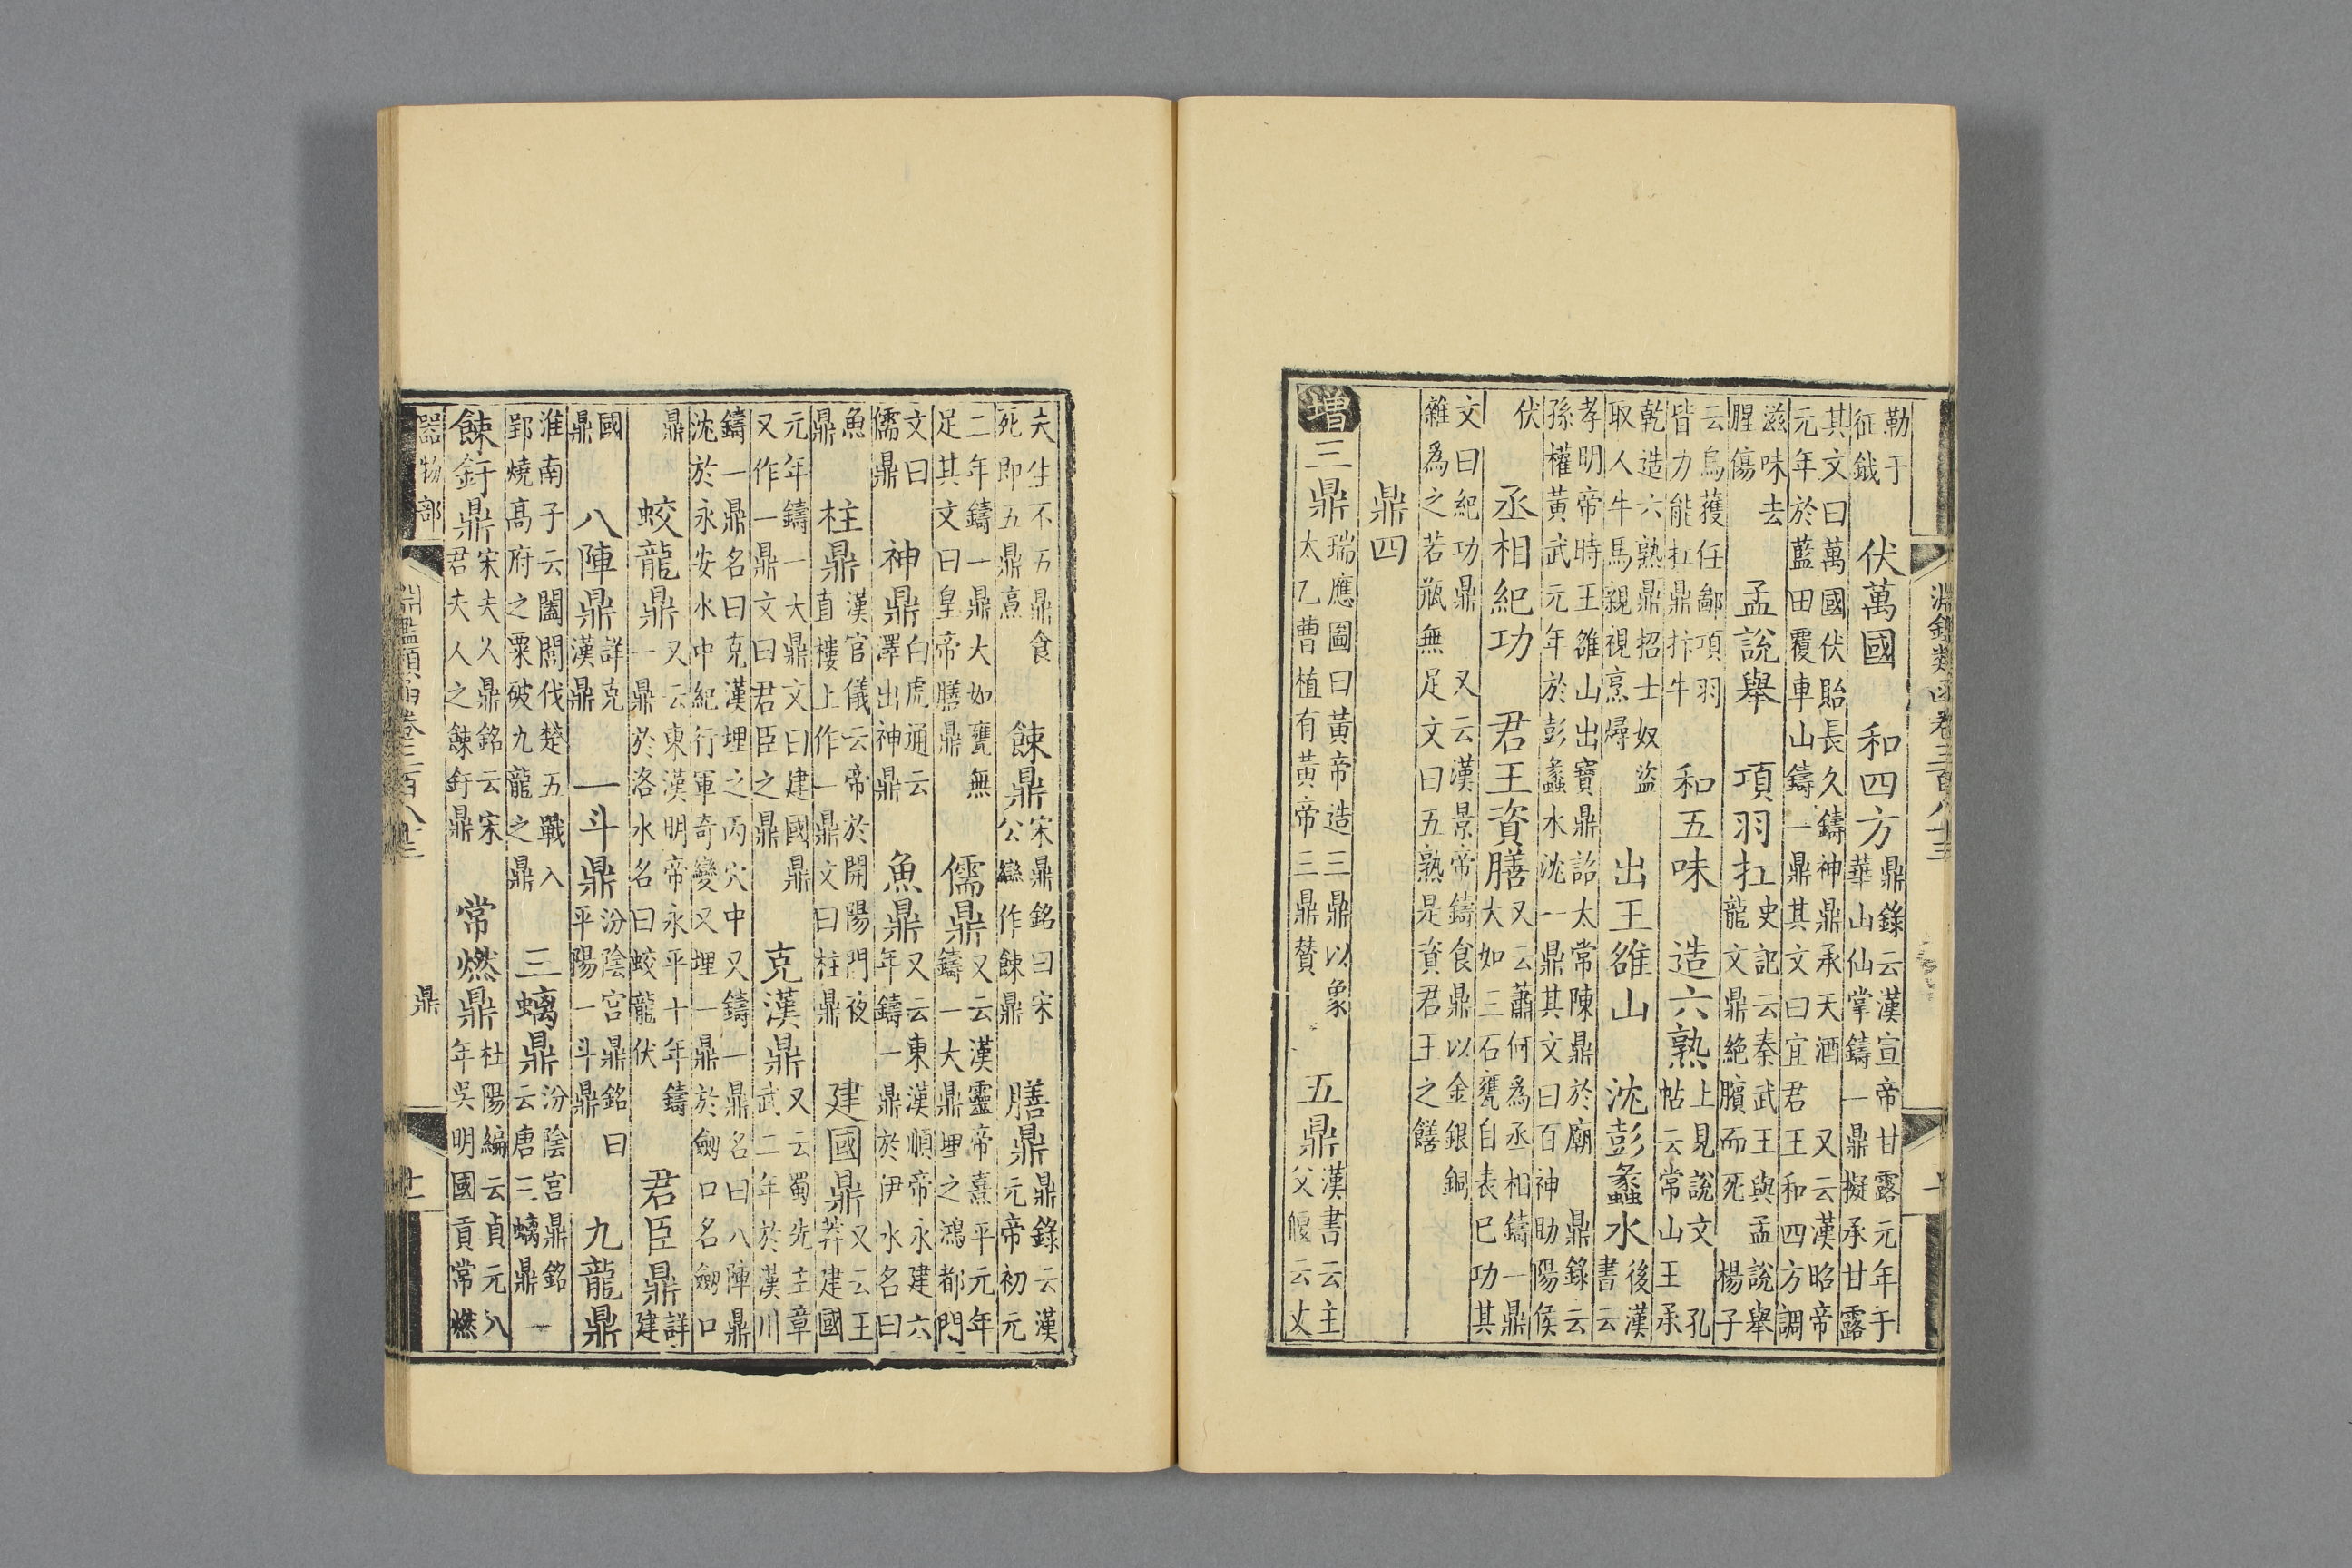 淵鑑類函卷三百八十三 十
勒于征鉞 伏萬國 和四方 鼎錄云漢宣帝甘露元年于華山仙掌鑄一鼎擬承甘露
其文曰萬國伏貽長久鑄神鼎承天酒 又云漢昭帝元年於藍田覆車山鑄一鼎其文曰宜君王和四方調
滋味去腥傷 孟說舉 項羽扛 史記云秦武王與孟說舉龍文鼎絕臏而死 楊子
云烏獲任鄙項羽皆力能扛鼎抃牛 和五味 造六熟 上見說文 孔帖云常山王承
乾造六熟鼎招士奴盜取人牛馬親視烹燖 出王雒山 沈彭蠡水 後漢書云
孝明帝時王雒山出寶鼎詔太常陳鼎於廟 鼎錄云孫權黃武元年於彭蠡水沈一鼎其文曰百神助陽侯
伏 丞相紀功 君王資膳 又云蕭何爲丞相鑄一鼎大如三石甕自表己功其
文曰紀功鼎 又云漢景帝鑄食鼎以金銀銅雜爲之若瓶無足文曰五熟是資君王之饍
鼎四
增 三鼎 瑞應圖曰黃帝造三鼎以象太乙曹植有黃帝三鼎贊 五鼎 漢書云主父偃云丈
夫生不五鼎食死即五鼎烹 餗鼎 宋鼎銘曰宋公䜌作餗鼎 膳鼎 鼎錄云漢元帝初元
二年鑄一鼎大如甕無足其文曰皇帝膳鼎 儒鼎 又云漢靈帝熹平元年鑄一大鼎埋之鴻都門
文曰儒鼎 神鼎 白虎通云澤出神鼎 魚鼎 又云東漢順帝永建六年鑄一鼎於伊水名曰
魚鼎 柱鼎 漢官儀云帝於開陽門夜直樓上作一鼎文曰柱鼎 建國鼎 又云王莽建國
元年鑄一大鼎文曰建國鼎又作一鼎文曰君臣之鼎 克漢鼎 又云蜀先主章武二年於漢川
鑄一鼎名曰克漢埋之丙穴中又鑄一鼎名曰八陣鼎沈於永安水中紀行軍奇變又埋一鼎於劒口名劒口
鼎 蛟龍鼎 又云東漢明帝永平十年鑄一鼎於洛水名曰蛟龍伏 君臣鼎 詳建
國鼎 八陣鼎 詳克漢鼎 一斗鼎 汾陰宮鼎銘曰平陽一斗鼎 九龍鼎
淮南子云闔閭伐楚五戰入郢燒高府之粟破九龍之鼎 三螭鼎 汾陰宮鼎銘一云唐三螭鼎
餗釪鼎 宋夫人鼎銘云宋君夫人之餗釪鼎 常燃鼎 杜陽編云貞元八年吳明國貢常燃
器物部 淵鑑類函卷三百八十三 鼎 十一